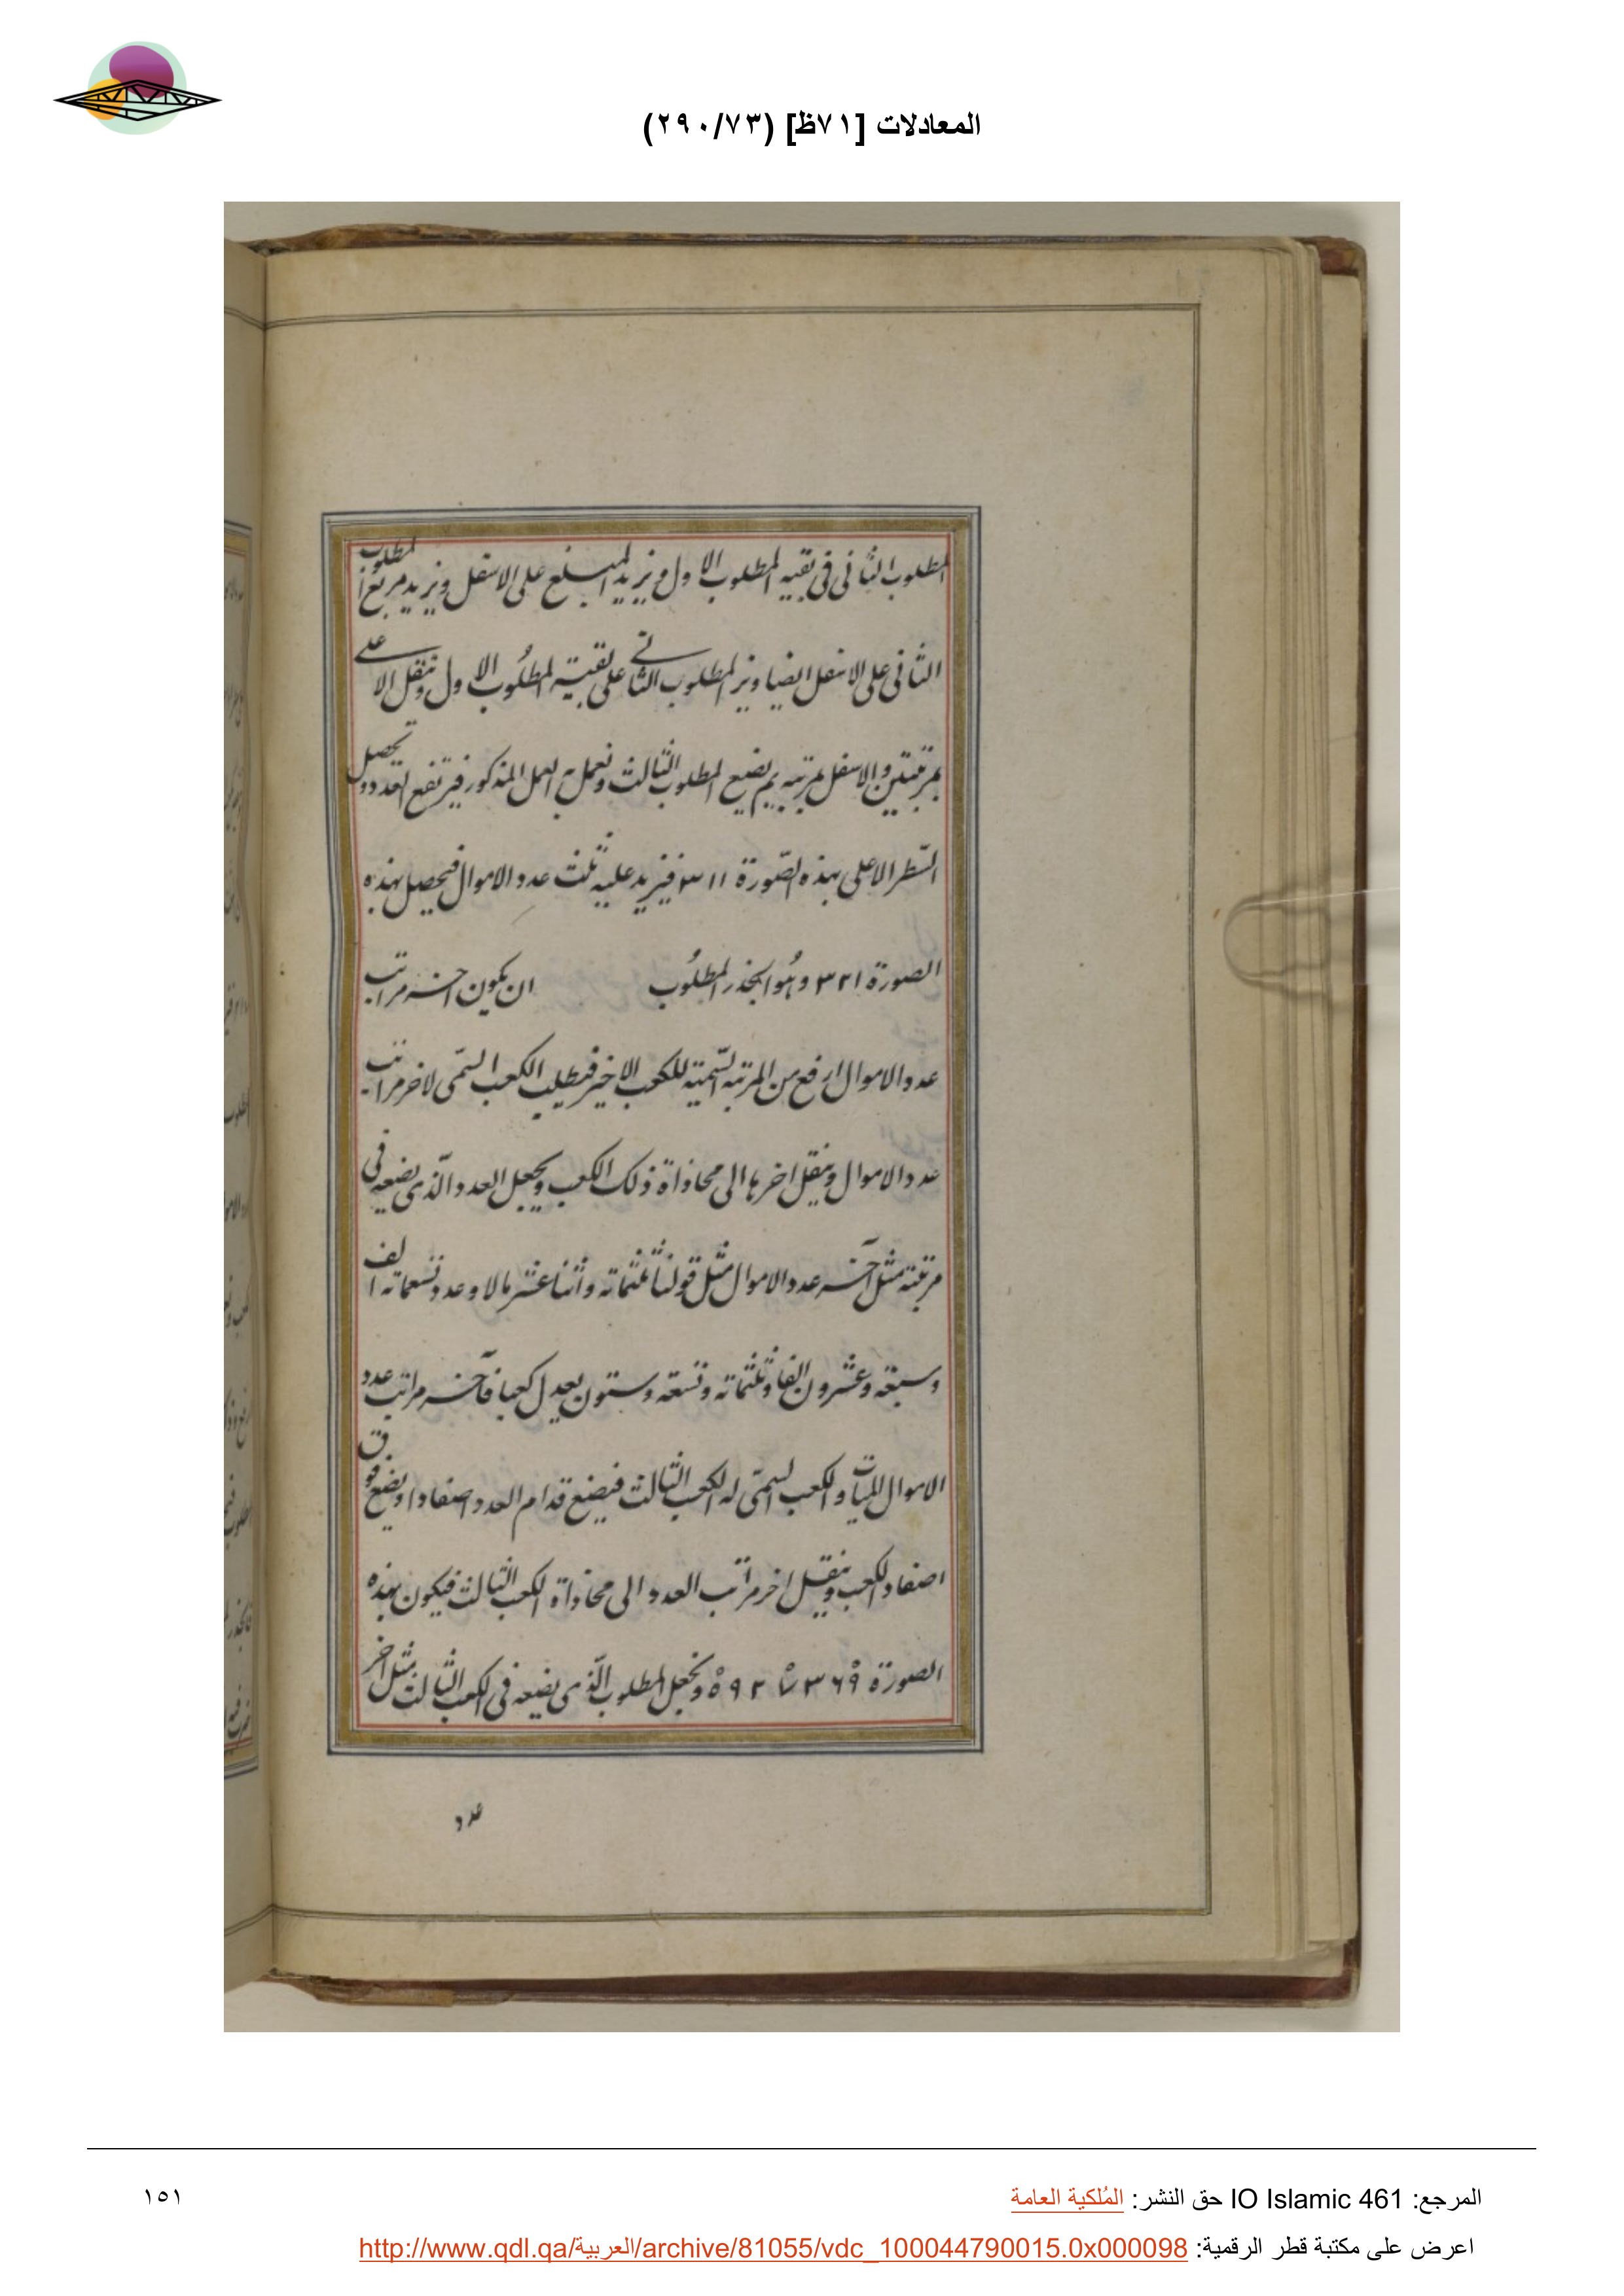 المعادلات [٧١ظ] (٢٩٠/٧٣)
المطلوب الثانى فى بقيه المطلوب الاول ونزيد المبلغ على الاسفل ونزيد مربع المطلوب
الثانى على الاسفل ايضا ونزيد المطلوب الثانى على بقية المطلوب الاول وننقل الاعلى
بمرتبتين والاسفل بمرتبه ثم يضع المطلوب الثالث ونعمل به العمل المذكور فيرتفع العدد وتحصل
السّطر الاعلى بهذه الصّورة ٣١١ فنزيد عليه ثلث عدد الاموال فيحصل بهذه
الصورة ٣٢١ وهُو الجذر المطلُوب ان يكون اخر مراتب
عدد الاموال ارفع من المرتبه السّمية للكعب الاخير فنطلب الكعب السّمى لاخر مراتب
عدد الاموال وينقل اخرها الى محاذاة ذلك الكعب ويجعل العدد الّذى يضعه فى
مرتبته مثل آخر عدد الاموال مثل قولنا ثلثماته واثنا عشر مالا وعدد تسعماته الف
وسبعة وعشرون الفا وثلثماته وتسعة وستون يعدل كعبا فآخر مراتب عدد
الاموال المات والكعب السمّى له الكعب الثالث فيضع قدام العدد اصفادا ويضع فوق
اصفاد الكعب وينقل اخر مراتب العدد الى محاذاة الكعب الثالث فيكون بهذه
الصورة ونجعل المطلوب الّذى يضعه فى الكعب الثالث مثل اخر
عدد
المرجع: IO Islamic 461 حق النشر: المُلكية العامة
١٥١
اعرض على مكتبة قطر الرقمية: http://www.qdl.qa/العربية/archive/81055/vdc_100044790015.0x000098